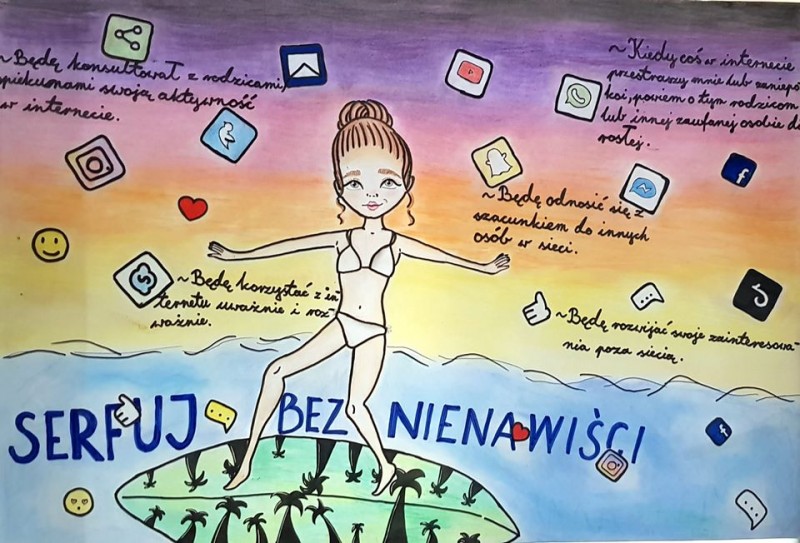 ~ Będę konsultował z rodzicami,
opiekunami swoją aktywność
w internecie.
~ Kiedy coś w internecie
przestraszy mnie lub zaniepo
koi, powiem o tym rodzicom
lub innej zaufanej osobie do
rosłej.
~ Będę odnosić się z
szacunkiem do innych
osób w sieci.
~ Będę korzystać z in
ternetu uważnie i roz
ważnie.
~ Będę rozwijać swoje zainteresowa
nia poza siecią.
SERFUJ BEZ NIENAWIŚCI